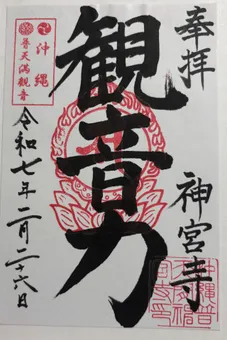 奉拝
沖縄
普天満観音
観音力
神宮寺
令和七年二月二十六日